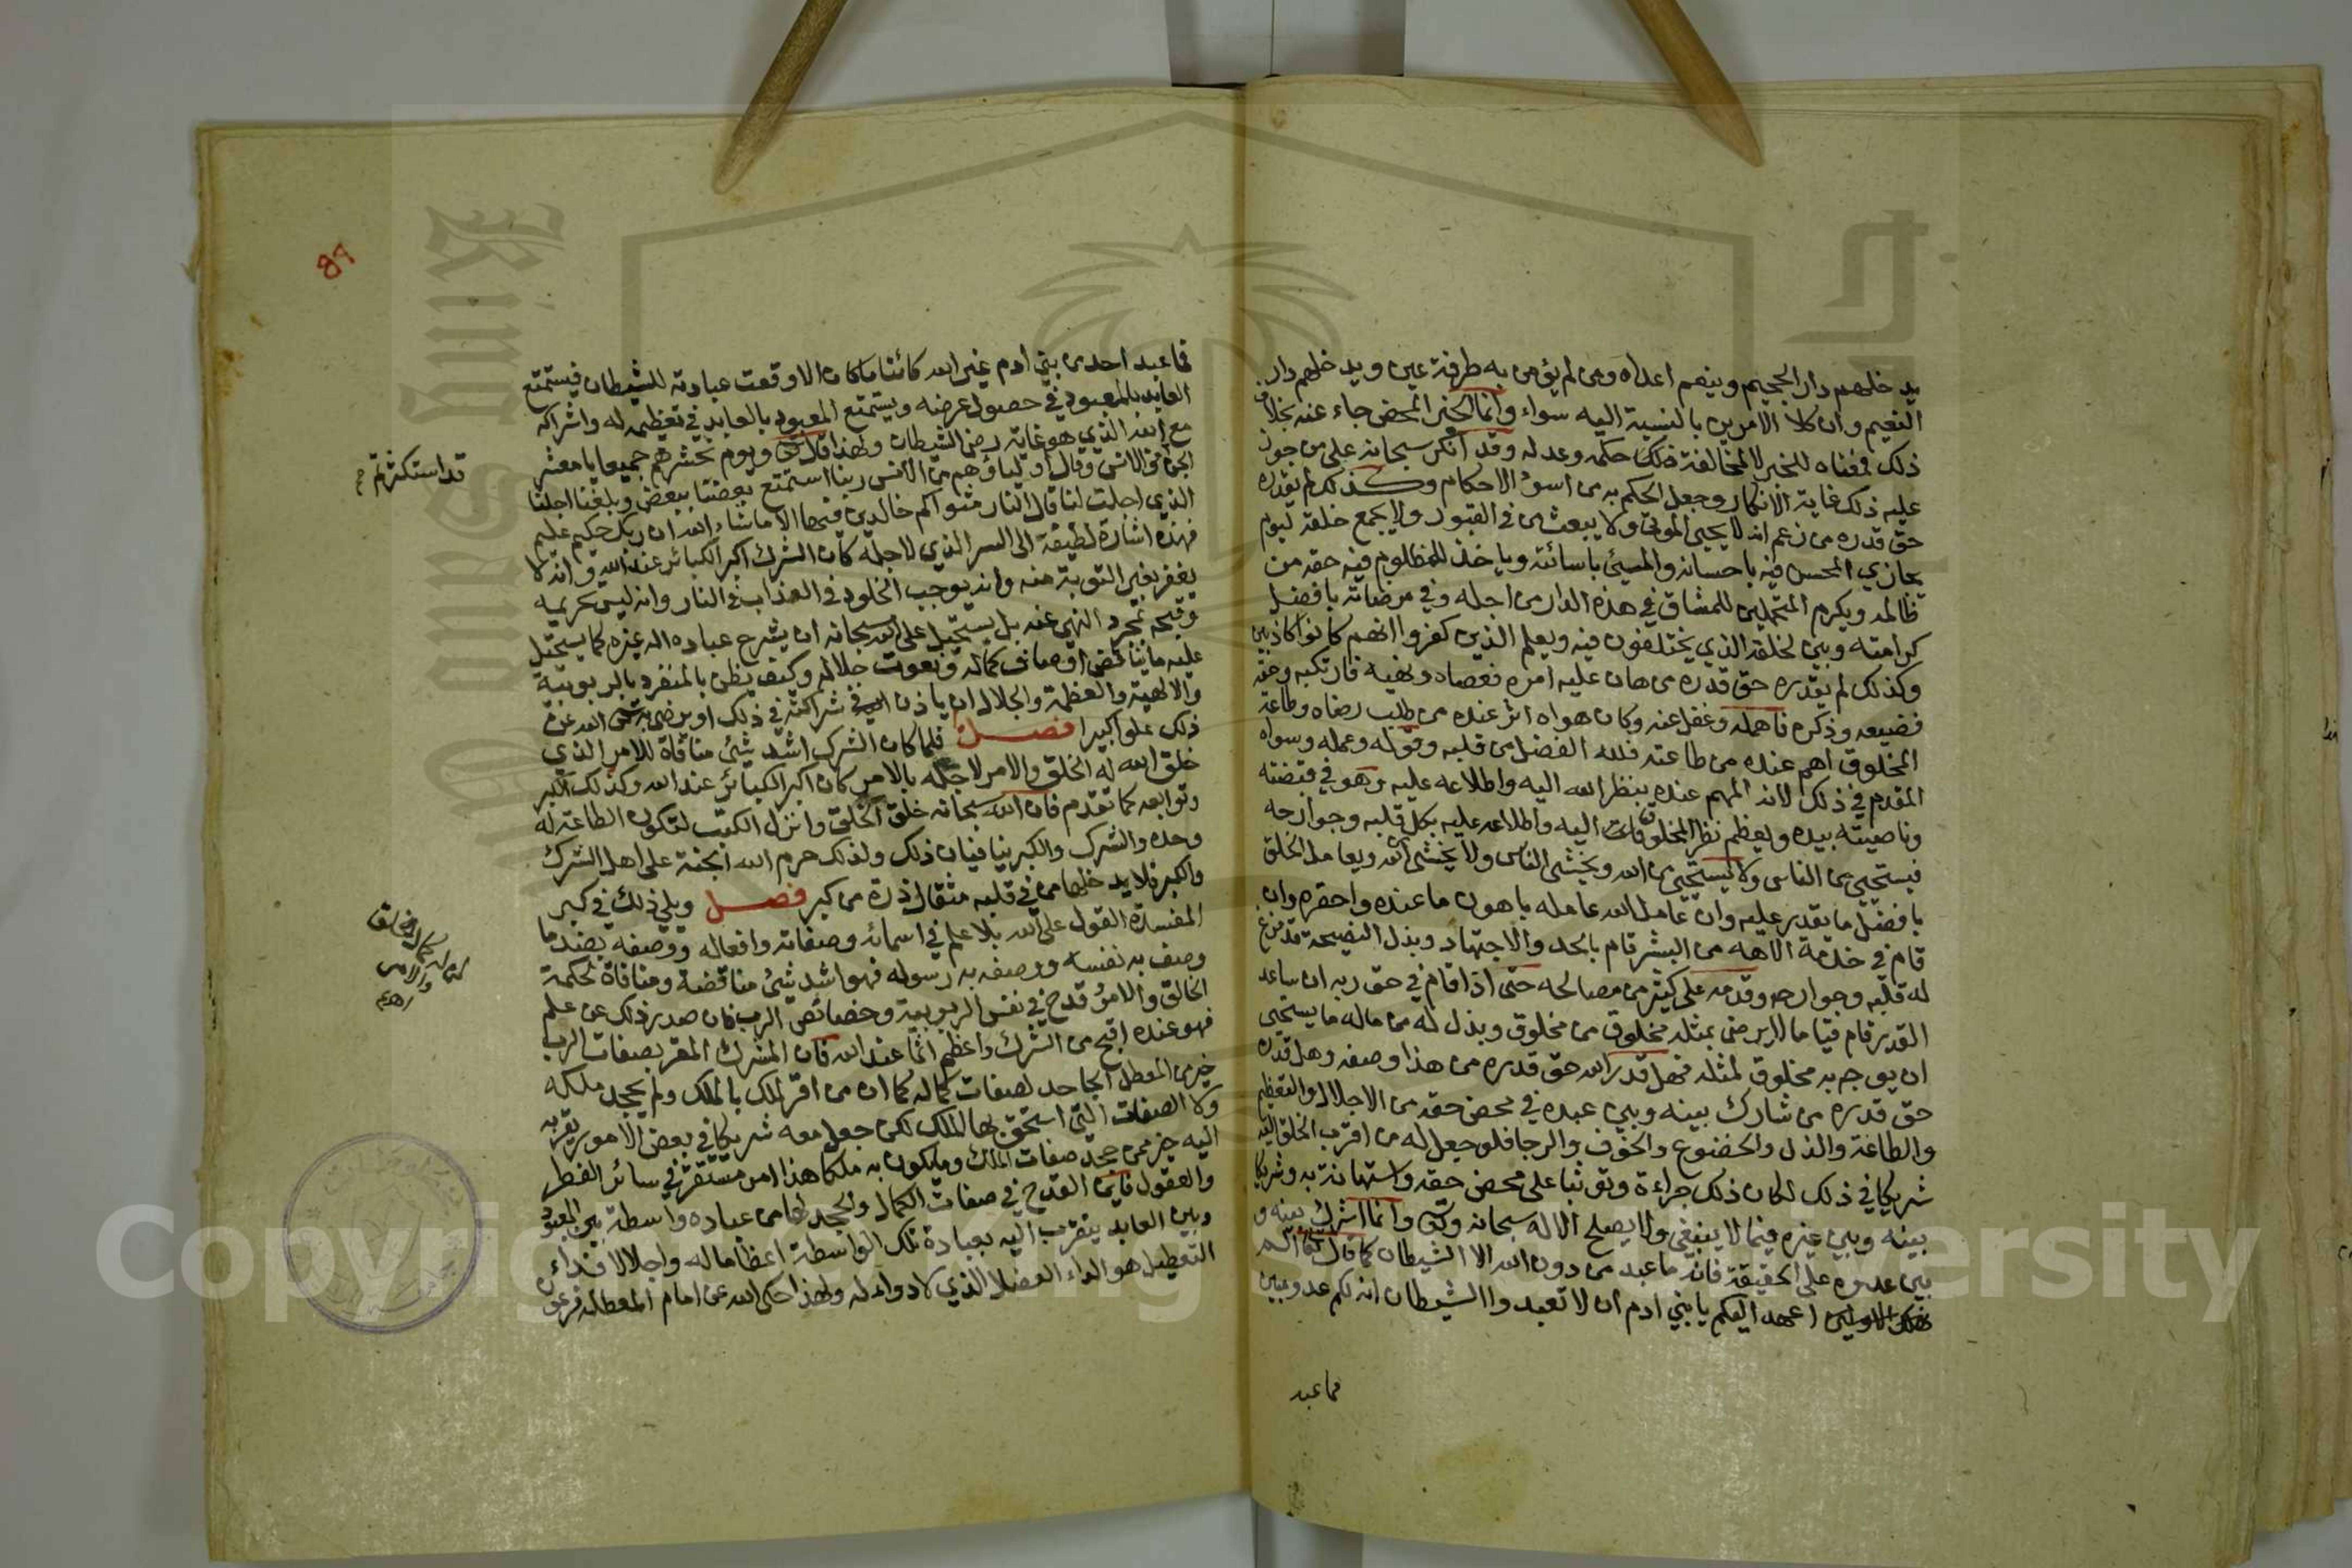 يدخلهم دار الجحيم وينعم اعداه ومن لم يؤمن به طرفة عين ويدخلهم دار
النعيم وان كلا الامرين بالنسبة اليه سواء وانما الخبر المحض جاء عنه بخلاف
ذلك فمعناه للخبر لا لمخالفة ذلك حكمه وعدله وقد انكر سبحانه على من جوز
عليه ذلك غاية الانكار وجعل الحكم به من اسوء الاحكام وكذلك لم يقدره
حق قدره من زعم انه لا يحيي الموتى ولا يبعث من في القبور ولا يجمع خلقه ليوم
يجازي المحسن فيه باحسانه والمسيئ باسائته وياخذ للمظلوم فيه حقه من
ظالمه ويكرم المتحملين للمشاق في هذه الدار من اجله وفي مرضاته بافضل
كرامته ويبين لخلقه الذي يختلفون فيه ويعلم الذين كفروا انهم كانوا كاذبين
وكذلك لم يقدره حق قدره من هان عليه امره فعصاه ونهيه فارتكبه وحقه
فضيعه وذكره فاهمله وغفل عنه وكان هواه اثر عنده من طلب رضاه وطاعة
المخلوق اهم عنده من طاعته فلله الفضل من قلبه وقوله وعمله وسواه
المقدم في ذلك لانه المهم عنده ينظر الله اليه واطلاعه عليه وهو في قبضته
وناصيته بيده ويعظم نظر المخلوق اليه واطلاعه عليه بكل قلبه وجوارحه
فيستحيي من الناس ولا يستحيي من الله ويخشى الناس ولا يخشى الله ويعامل الخلق
بافضل ما يقدر عليه وان عامل الله عامله باهون ما عنده واحقره وان
قام في خدمة الاهه من البشر قام بالجد والاجتهاد وبذل النصيحة قد فرغ
له قلبه وجوارحه وقدمه على كثير من مصالحه حتى اذا قام في حق ربه ان ساعد
القدر قام قياما لا يرضى بمثله مخلوق من مخلوق وبذل له من ماله ما يستحيي
ان يوجه به مخلوق لمثله فهل قدر الله حق قدره من هذا وصفه وهل قدره
حق قدره من شارك بينه وبين عبده في محض حقه من الاجلال والتعظيم
والطاعة والذل والخضوع والخوف والرجا فلو جعل له من اقرب الخلق اليه
شريكا في ذلك لكان ذلك جراءة وتوثبا على محض حقه واستهانة به وشريكا
بينه وبين غيره فيما لا ينبغي ولا يصلح الا له سبحانه وانما اشرك بينه و
بين عدوه على الحقيقة فانه ما عبد من دون الله الا الشيطان كما قال تعالى الم
اعهد اليكم يا بني ادم ان لا تعبدوا الشيطان انه لكم عدو مبين
فما عبد
89
فما عبد احد من بني ادم غير الله كائنا ما كان الا وقعت عبادته للشيطان فيستمتع
العابد بالمعبود في حصول غرضه ويستمتع المعبود بالعابد في تعظيمه له واشراكه
مع الله الذي هو غاية رضى الشيطان ولهذا قال تعالى ويوم نحشرهم جميعا يا معشر
الجن من الانس وقال اولياؤهم من الانس ربنا استمتع بعضنا ببعض وبلغنا اجلنا
قد استكثرتم
الذي اجلت لنا قال النار مثواكم خالدين فيها الا ما شاء الله ان ربك حكيم عليم
فهذه اشارة لطيفة الى السر الذي لاجله كان الشرك اكبر الكبائر عند الله وانه لا
يغفر بغير التوبة منه وانه يوجب الخلود في العذاب في النار وانه ليس تحريمه
وقبحه بمجرد النهي عنه بل يستحيل على الله سبحانه ان يشرع عباده اله غيره كما يستحيل
عليه ما يناقض اوصاف كماله ونعوت جلاله وكيف يظن بالمنفرد بالربوبية
والالهية والعظمة والجلال ان ياذن في شراكته في ذلك او يرضى به تعالى الله عن
ذلك علوا كبيرا فصل فلما كان الشرك اشد شيئ منافاة للامر الذي
خلق الله له الخلق والامر لاجله بالامر كان اكبر الكبائر عند الله وكذلك الكبر
وتوابعه كما تقدم فان الله سبحانه خلق الخلق وانزل الكتب لتكون الطاعة له
وحده والشرك والكبر ينافيان ذلك ولذلك حرم الله الجنة على اهل الشرك
والكبر فلا يدخلها من في قلبه مثقال ذرة من كبر فصل ويلي ذلك في كبر
المفسدة القول على الله بلا علم في اسمائه وصفاته وافعاله ووصفه بضد ما
وصف به نفسه ووصفه به رسوله فهو اشد شيئ مناقضة ومنافاة لحكمة
الخالق والامر وقدح في نفس الربوبية وخصائص الرب فان صدر ذلك عن علم
فهو عنده اقبح من الشرك واعظم اثما عند الله فان المشرك المقر بصفات الرب
خير من المعطل الجاحد لصفات كماله كما ان من اقر لملك بالملك ولم يجحد ملكه
ولا الصفات التي استحق بها الملك لكن جعل معه شريكا في بعض الامور يقربه
اليه خير ممن جحد صفات الملك وما يكون به ملكا هذا امر مستقر في سائر الفطر
والعقول فاين القدح في صفات الكمال والجحد لها من عباده واسطة بين المعبود
وبين العابد يتقرب اليه بعبادة تلك الواسطة اعظاما له واجلالا فداء
التعطيل هو الداء العضال الذي لا دواء له ولهذا حكى الله عن امام المعطلة فرعون